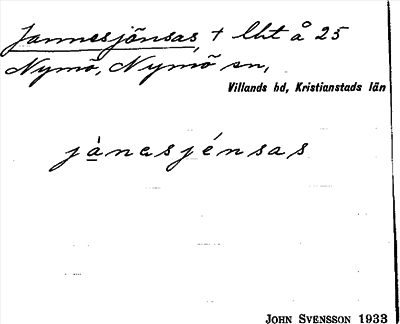 Jannesjönsas, + lht å 25
Nymö, Nymö sn,
Villands hd, Kristianstads län
jànesjénsas
John Svensson 1933